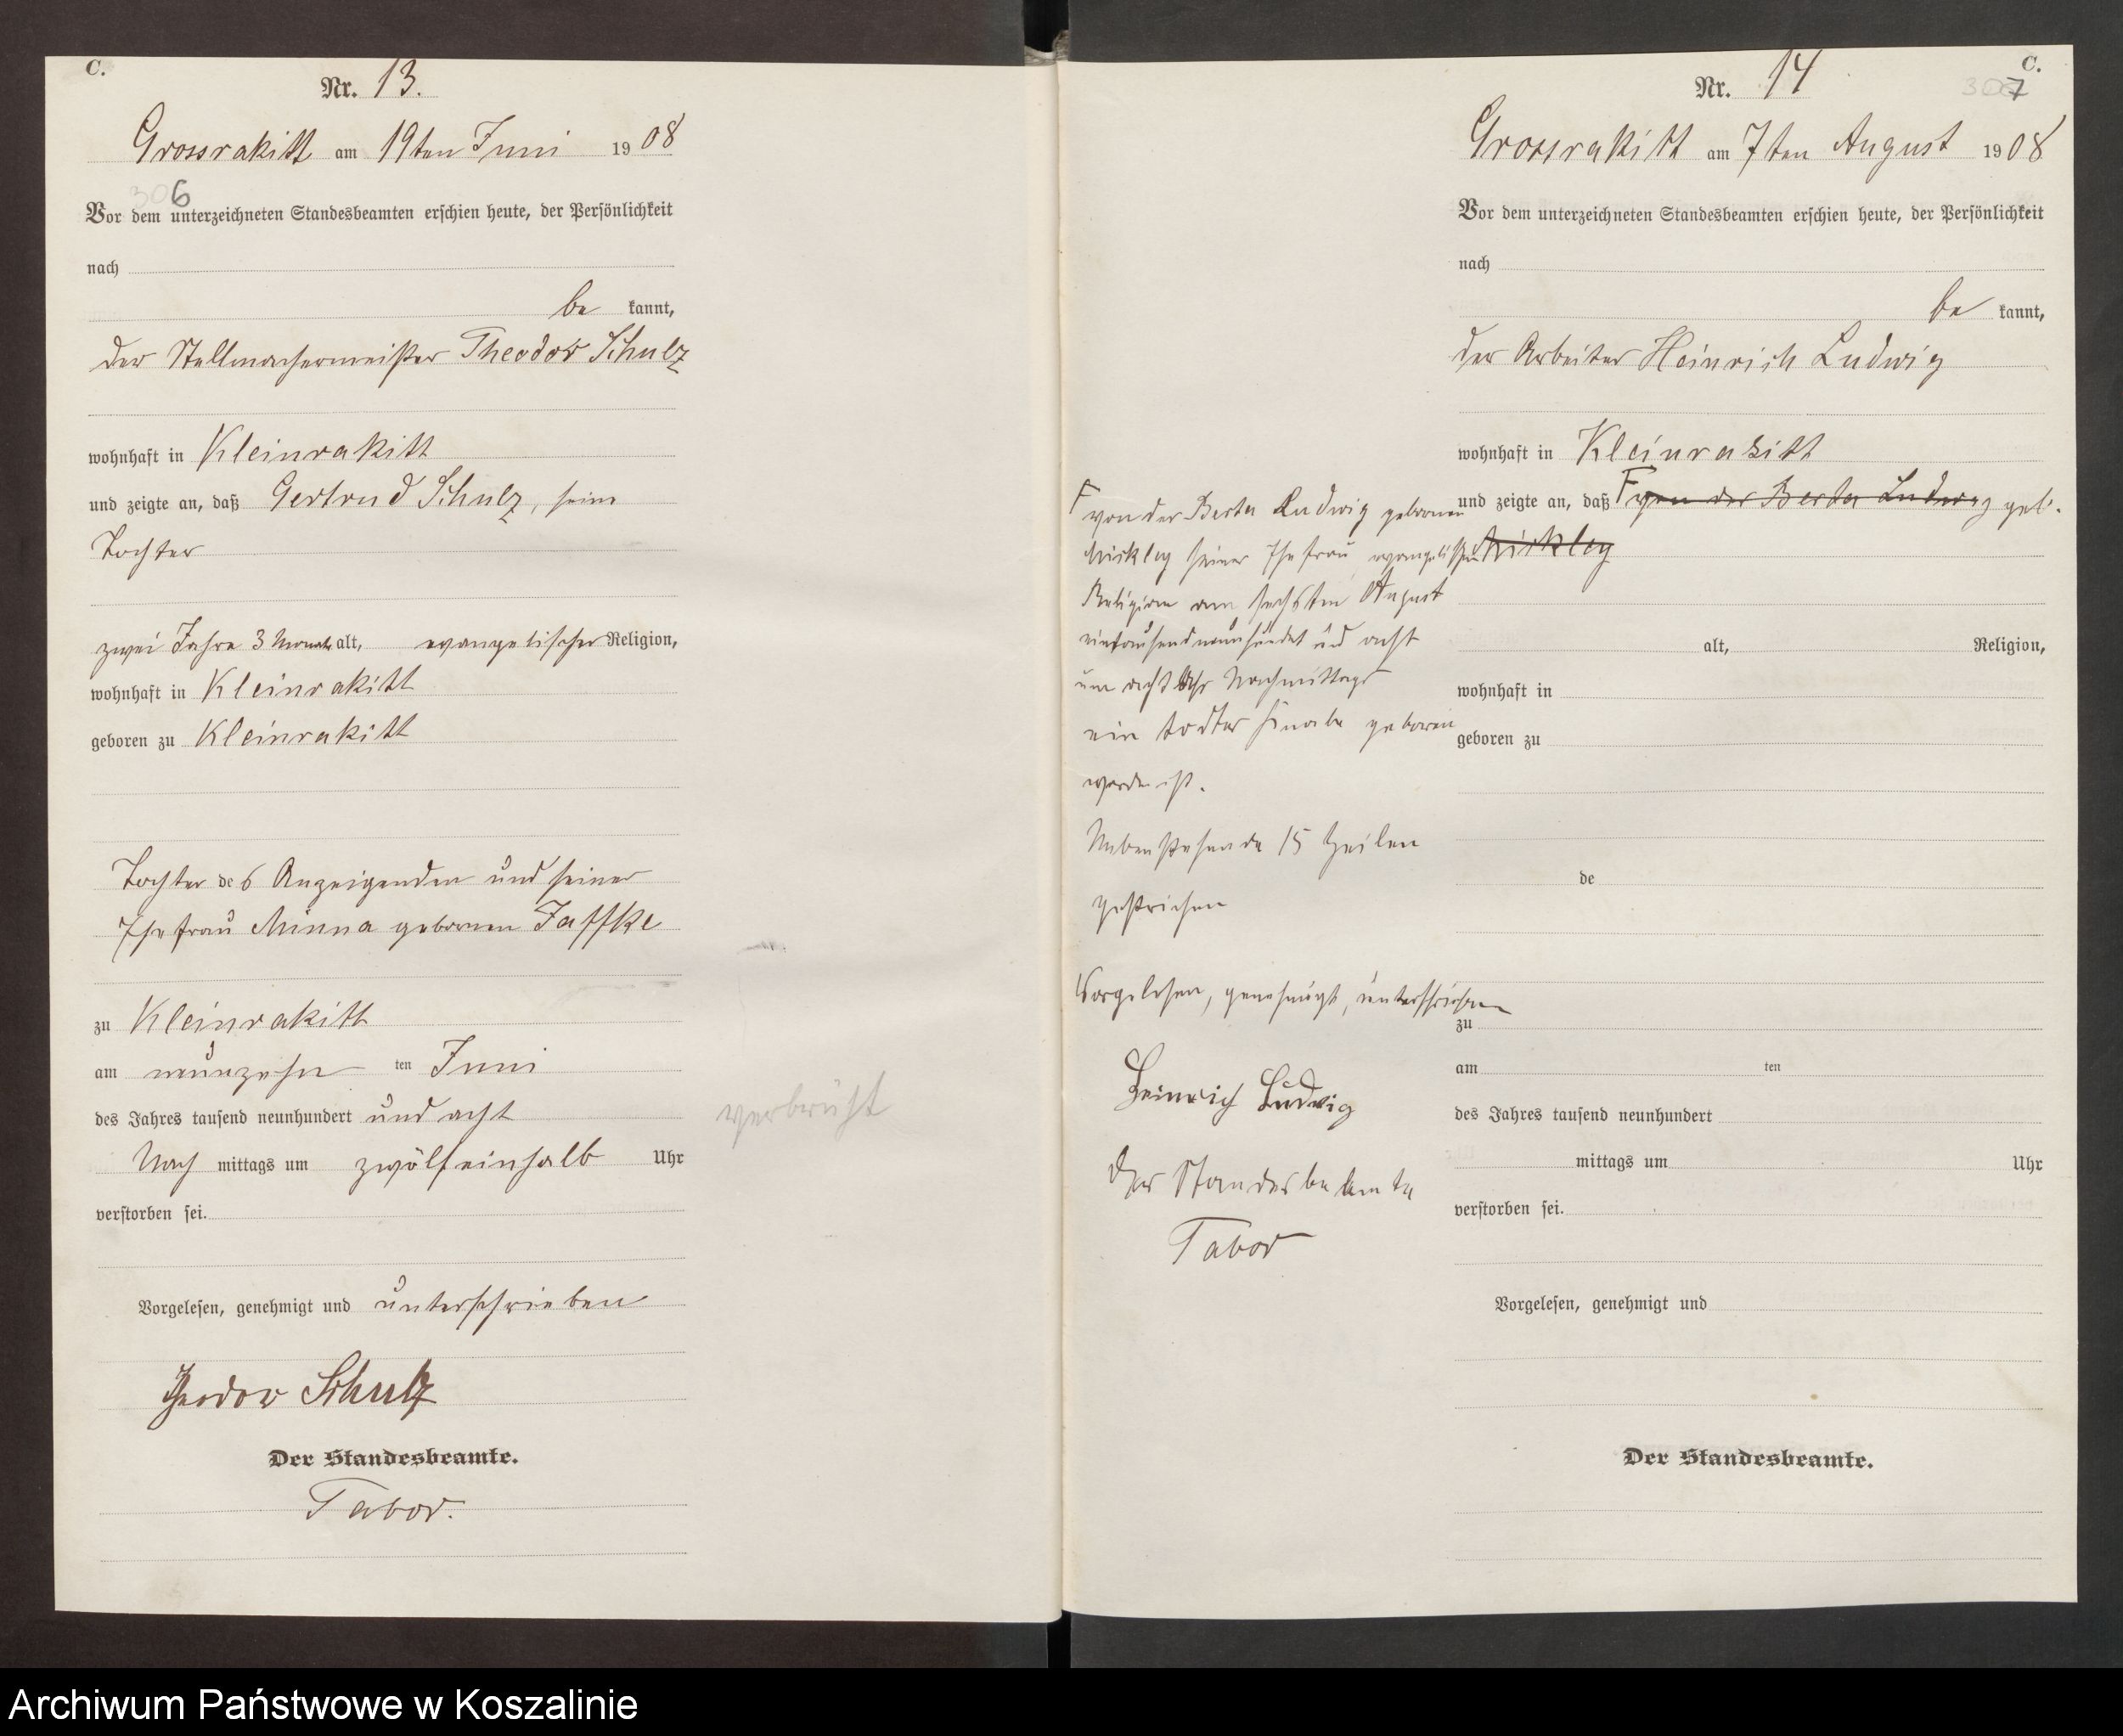 C.
Nr. 13.
Grossrakitt am 19ten Juni 1908
306
Vor dem unterzeichneten Standesbeamten erschien heute, der Persönlichkeit
nach
be kannt,
der Stellmachermeister Theodor Schulz
wohnhaft in Kleinrakitt
und zeigte an, daß Gertrud Schulz, seine
Tochter
zwei Jahre 3 Monate alt, evangelischer Religion,
wohnhaft in Kleinrakitt
geboren zu Kleinrakitt
Tochter des Anzeigenden und seiner
Ehefrau Minna gebornen Jaffke
zu Kleinrakitt
am neunzehn ten Juni
des Jahres tausend neunhundert und acht
Nach mittags um zwölfeinhalb Uhr
verstorben sei.
Vorgelesen, genehmigt und unterschrieben
Theodor Schulz
Der Standesbeamte.
Tabor.
verbrüht
C.
Nr. 14
307
Grossrakitt am 7ten August 1908
Vor dem unterzeichneten Standesbeamten erschien heute, der Persönlichkeit
nach
be kannt,
der Arbeiter Heinrich Ludwig
wohnhaft in Kleinrakitt
und zeigte an, daß F von der Berta Ludwig geb.
Mickley
alt, Religion,
wohnhaft in
geboren zu
de
zu
am ten
des Jahres tausend neunhundert
mittags um Uhr
verstorben sei.
Vorgelesen, genehmigt und
Der Standesbeamte.
F von der Berta Ludwig gebornen
Mickley seiner Ehefrau evangelischer
Religion am sechsten August
eintausendneunhundert und acht
um acht Uhr Nachmittags
ein todter Knabe geboren
worden ist.
Nebenstehende 15 Zeilen
gestrichen
Vorgelesen, genehmigt, unterschrieben
Heinrich Ludwig
Der Standesbeamte
Tabor
Archiwum Państwowe w Koszalinie